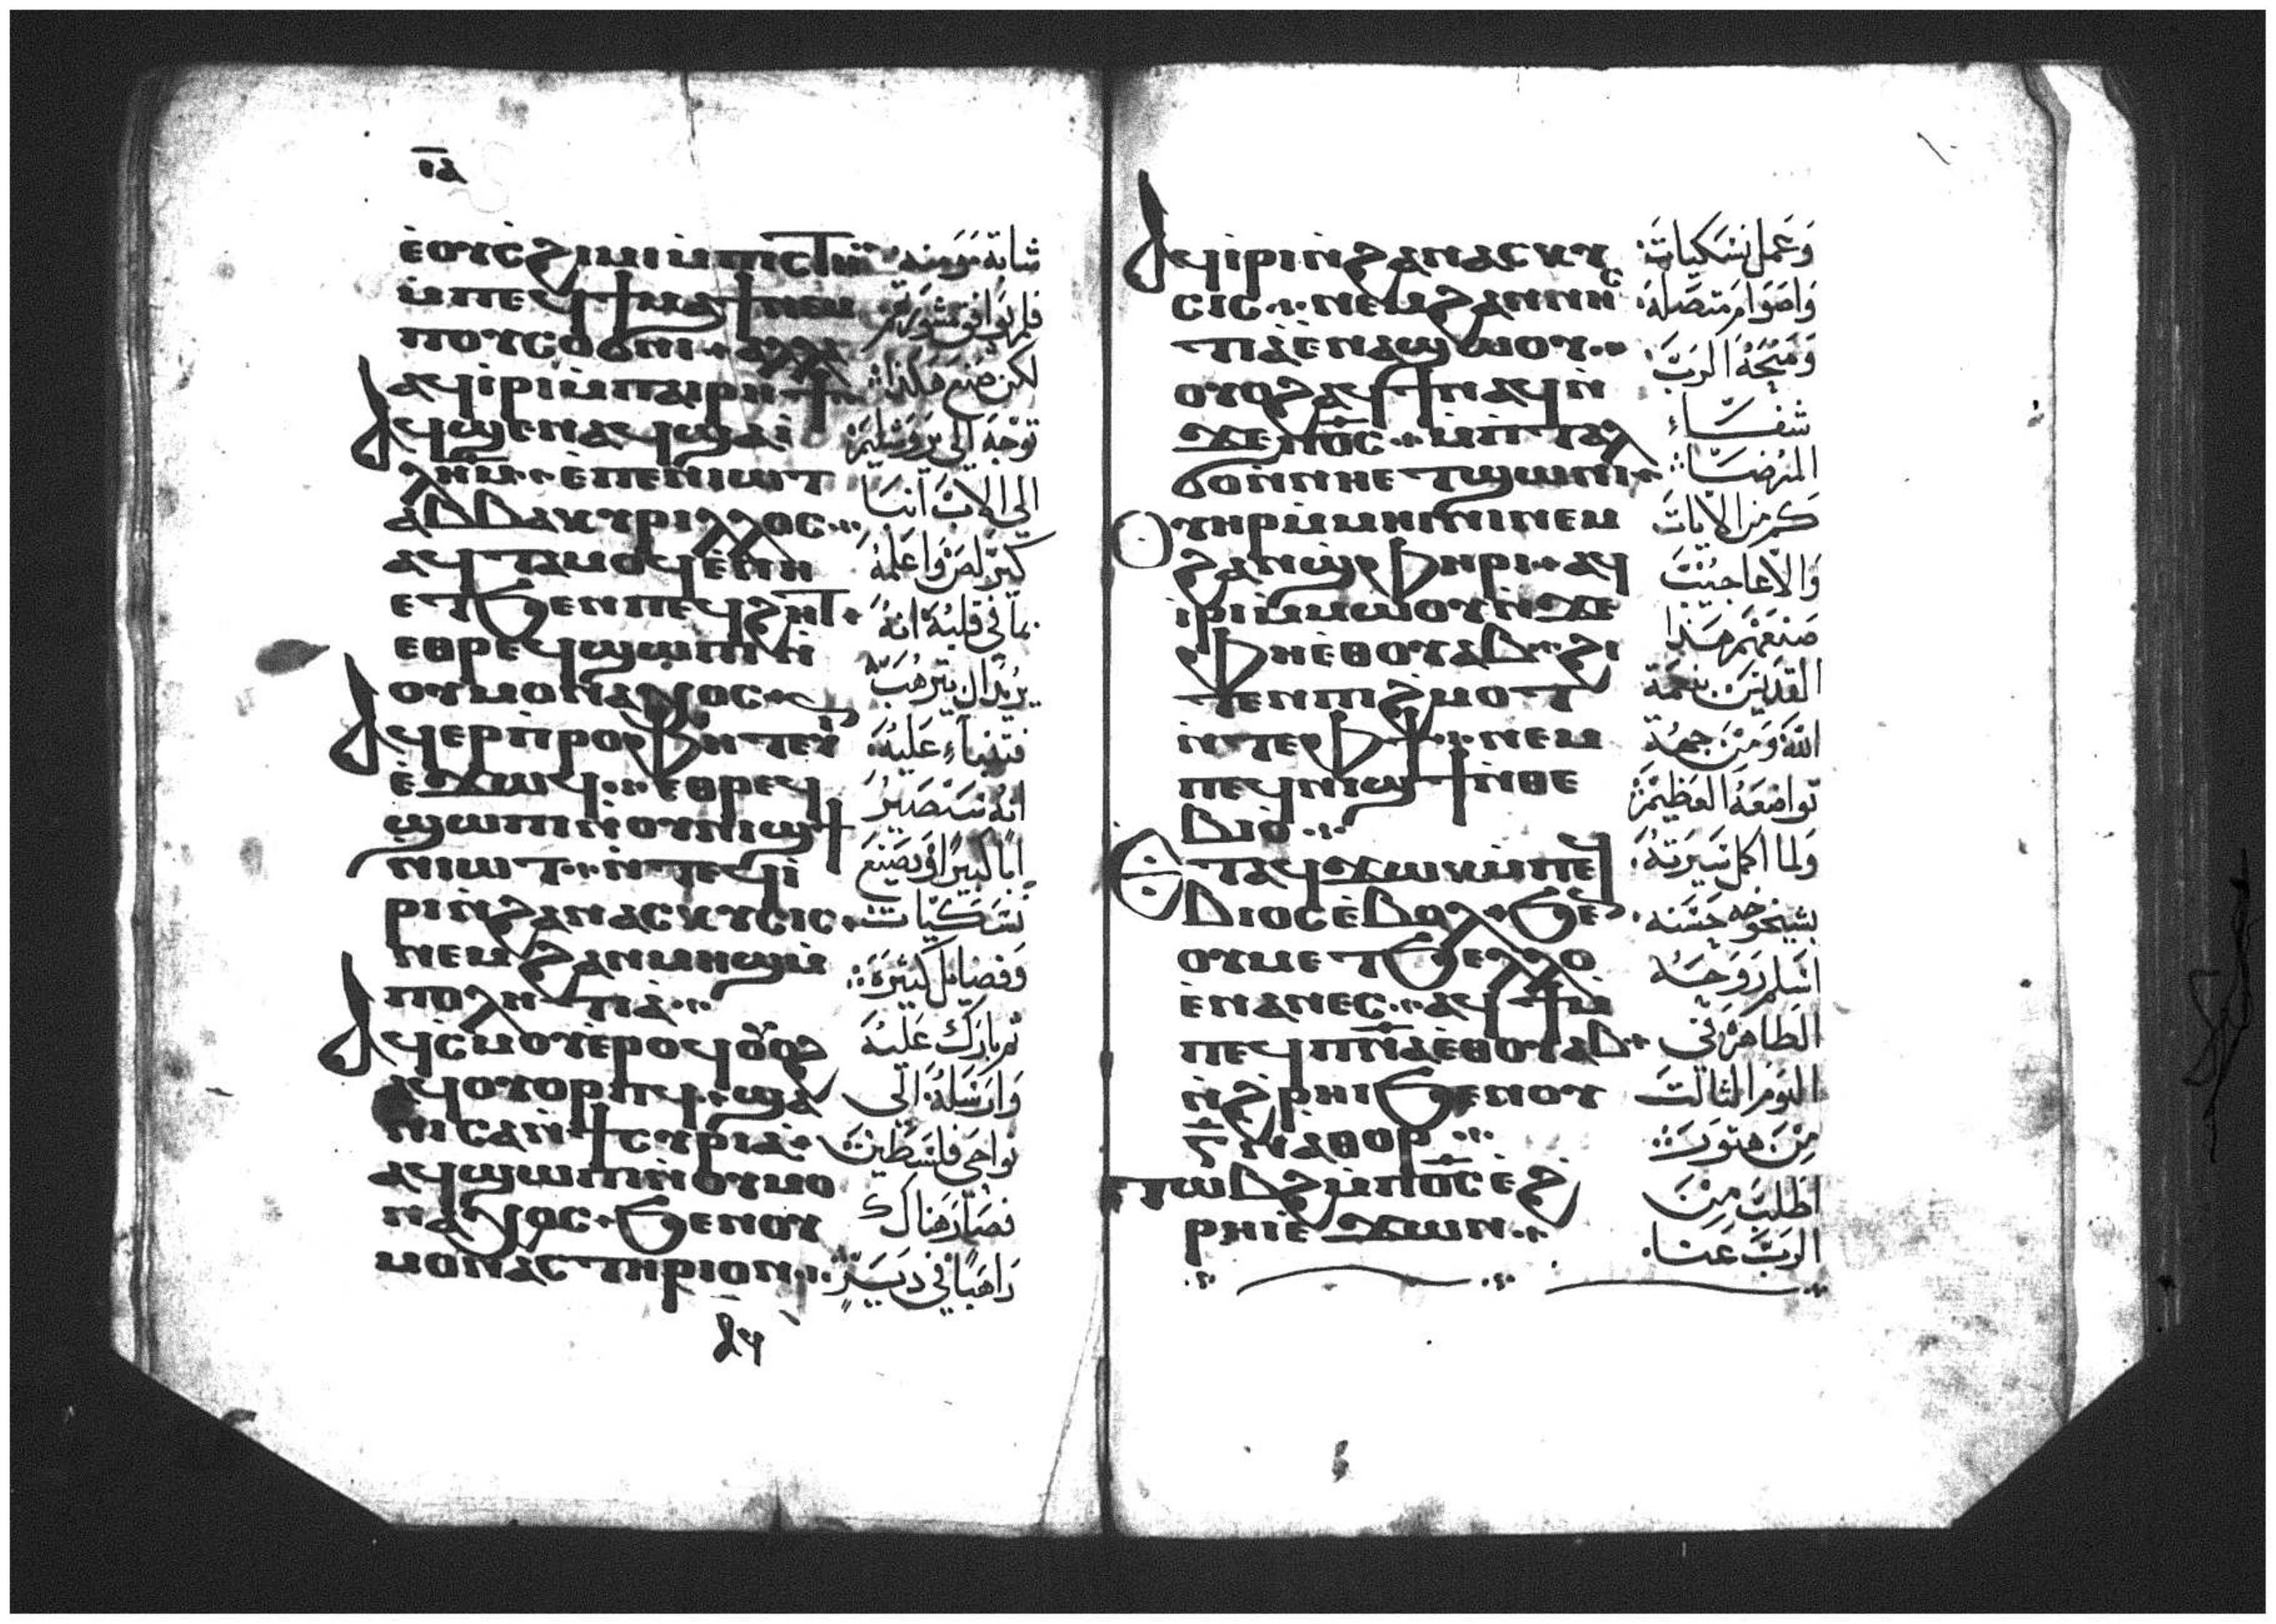 ⲓⲇ
ⲉ̀ⲟⲩⲥϩⲓⲙⲓ ⲙ̀ⲡⲓⲥⲧⲏ
ⲙ̀ⲡⲉϥϯⲙⲁϯ ⲛⲉⲙ
ⲡⲟⲩⲥⲟϭⲛⲓ ⲁⲗⲗⲁ
ⲁϥⲓ̀ⲣⲓ ⲙ̀ⲡⲁⲓⲣⲏϯ
ⲁϥϣⲉⲛⲁϥ ϣⲁⲓ̀
ⲗⲏⲙ ⲉ̀ⲡⲉⲛⲓⲱⲧ
ⲁⲃⲃⲁ ⲕⲩⲣⲓⲗⲗⲟⲥ
ⲁϥⲧⲁⲙⲟϥ ⲉ̀ⲛⲏ
ⲉⲧϧⲉⲛ ⲡⲉϥϩⲏⲧ
ⲉⲑⲣⲉϥϣⲱⲡⲓ ⲛ̀
ⲟⲩⲙⲟⲛⲁⲭⲟⲥ
ⲁϥⲉⲣⲡ̀ⲣⲟⲫⲏⲧⲉⲩ
ⲉ̀ϫⲱϥ ⲉⲑⲣⲉϥ
ϣⲱⲡⲓ ⲛ̀ⲟⲩⲛⲓϣϯ
ⲛⲓⲱⲧ ⲛ̀ⲧⲉϥⲓ̀
ⲣⲓ ⲛ̀ϩⲁⲛⲁⲥⲕⲩⲥⲓⲥ
ⲛⲉⲙ ϩⲁⲛⲙⲏϣ ⲙ̀
ⲡⲟⲗⲏⲧⲓⲁ̀
ⲁϥⲥ̀ⲙⲟⲩ ⲉ̀ⲣⲟϥ ⲟⲩⲟϩ
ⲁϥⲟⲩⲟⲣⲡϥ ϣⲁ
ⲛⲓⲥⲁ ⲛ̀ϯⲥⲩⲣⲓⲁ̀
ⲁϥϣⲱⲡⲓ ⲛ̀ⲟⲩⲙⲟ
ⲛⲁⲭⲟⲥ ϧⲉⲛ ⲟⲩ
ⲙⲟⲛⲁⲥⲧⲏⲣⲓⲟⲛ
ⲁϥ
شابة مومنه
فلم يوافق مشورتهم
لكن صنع هكذا
توجه الى يروشليم
الى الاب انبا
كيرلص واعلمه
بما في قلبه انه
يريد ان يترهب
فتنباء عليه
انه سيصير
ابا كبيرا ويصنع
نسكيات
وفضايل كثيرة
ثم بارك عليه
وارسله الى
نواحي فلسطين
فصار هناك
راهبا في دير
ⲁϥⲓ̀ⲣⲓ ⲛ̀ϩⲁⲛⲁⲥⲕⲩ
ⲥⲓⲥ ⲛⲉⲙ ϩⲁⲛⲛⲏⲥ
ⲧⲓⲁ̀ ⲉⲛⲁϣⲱⲟⲩ
ⲟⲩⲟϩ ⲁϥϯ ⲛⲁϥ ⲛ̀
ϫⲉ ⲡ⳪ ⲙ̀ⲡⲧⲁⲗ
ϭⲟ ⲛ̀ⲛⲏⲉⲧϣⲱⲛⲓ
ⲟⲩⲏⲣ ⲙ̀ⲙⲏⲓⲛⲓ ⲛⲉⲙ
ϩⲁⲛϣ̀ⲫⲏⲣⲓ ⲁϥ
ⲓ̀ⲣⲓ ⲙ̀ⲙⲱⲟⲩ ⲛ̀ϫⲉ
ⲫⲏⲉ̀ⲑⲟⲩⲁⲃ ϩⲓ
ⲧⲉⲛ ⲡⲓϩⲙⲟⲧ
ⲛ̀ⲧⲉ ⲫϯ ⲛⲉⲙ
ⲡⲉϥⲛⲓϣϯ ⲛ̀ⲑⲉ
ⲃⲓⲟ
ⲉⲧⲁϥϫⲱⲕ ⲙ̀ⲡⲉϥ
ⲃⲓⲟⲥ ⲉ̀ⲃⲟⲗ ϧⲉⲛ
ⲟⲩⲙⲉⲧϧⲉⲗⲗⲟ
ⲉ̀ⲛⲁⲛⲉⲥ ⲁϥϯ ⲙ̀
ⲡⲉϥⲡⲛⲁ ⲉⲑⲟⲩⲁⲃ
ⲛ̀ϩ̀ⲣⲏⲓ ϧⲉⲛ ⲟⲩ
ⲛ̀ⲁⲑⲟⲣ
ⲧⲱⲃϩ ⲙ̀ⲡ⳪ ⲉ̀ϩ̀
ⲣⲏⲓ ⲉ̀ϫⲱⲛ
وعمل نسكيات
واصوام متصله
ومنحه الرب
شفاء
المرضا
كم من الايات
والاعاجيب
صنعهم هذا
القديس بنعمة
الله ومن جهة
تواضعه العظيم
ولما اكمل سيرته
بشيخوخه حسنه
اسلم روحه
الطاهرة في
اليوم الثالث
من هتور
اطلب من
الرب عنا